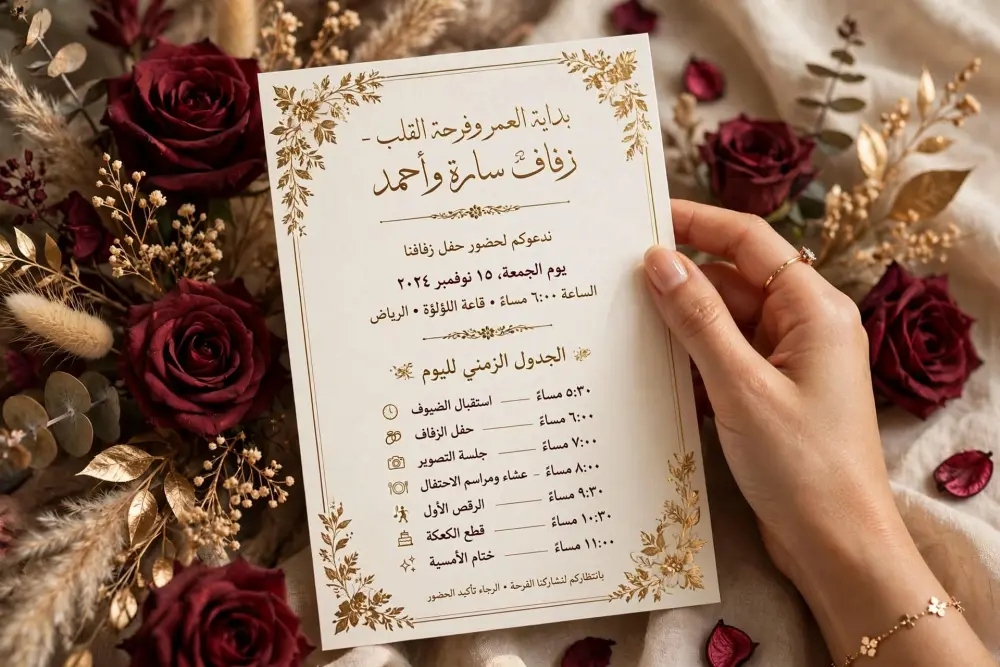 بداية العمر وفرحة القلب -
زفاف سارة وأحمد
ندعوكم لحضور حفل زفافنا
يوم الجمعة، ١٥ نوفمبر ٢٠٢٤
الساعة ٦:٠٠ مساءً • قاعة اللؤلؤة • الرياض
الجدول الزمني لليوم
٥:٣٠ مساءً —— استقبال الضيوف
٦:٠٠ مساءً —— حفل الزفاف
٧:٠٠ مساءً —— جلسة التصوير
٨:٠٠ مساءً - عشاء ومراسم الاحتفال
٩:٣٠ مساءً —— الرقص الأول
١٠:٣٠ مساءً —— قطع الكعكة
١١:٠٠ مساءً —— ختام الأمسية
بانتظاركم لنشاركنا الفرحة • الرجاء تأكيد الحضور